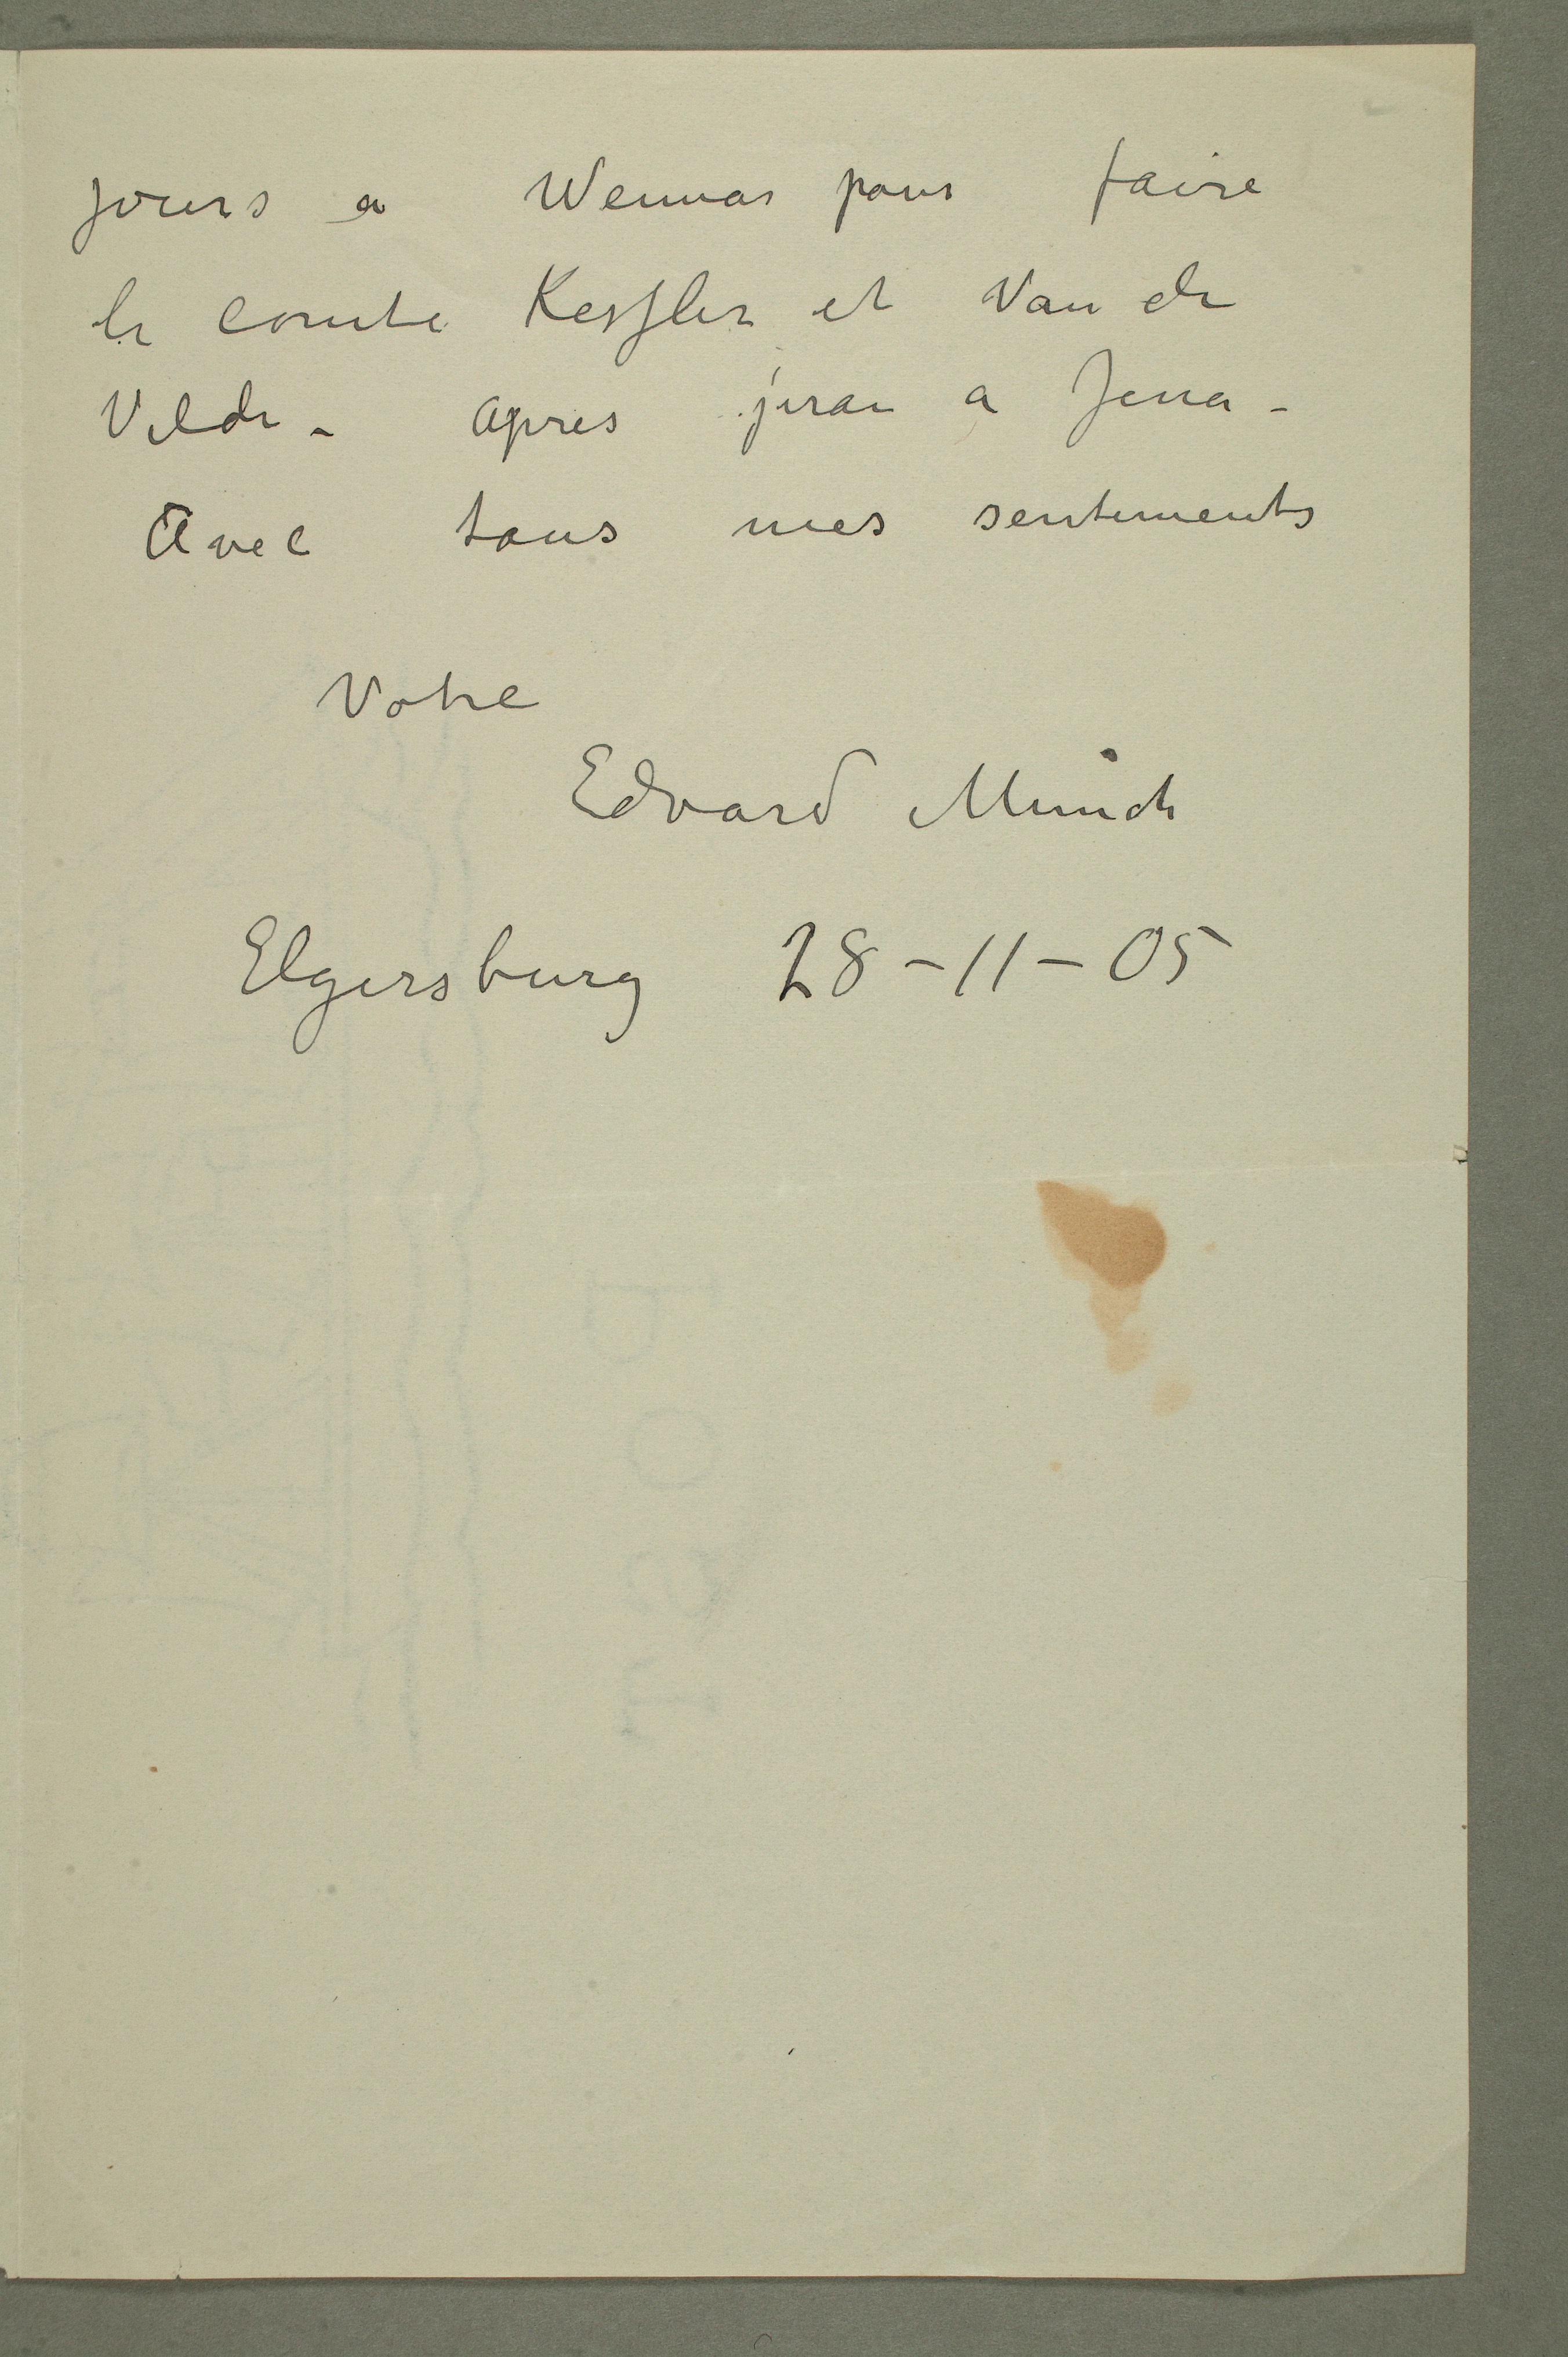 jours a Weimar pour faire
le comte Kessler et Van de
Velde – Apres j'irai a Jena –
Avec tous mes sentiments
Votre
Edvard Munch
Elgersburg 28 – 11 – 05